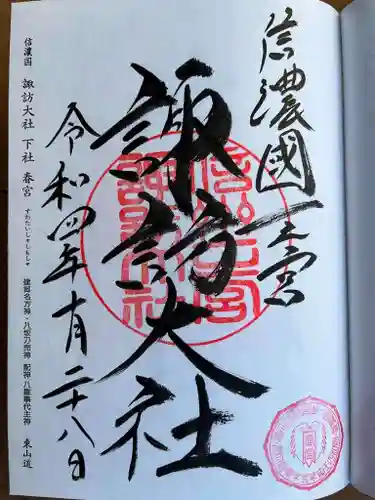 信濃國一之宮
諏訪大社
令和四年十月二十八日
信濃国 諏訪大社 下社 春宮 すわたいしゃしもしゃ 建御名方神・八坂刀売神 配神・八重事代主神 東山道